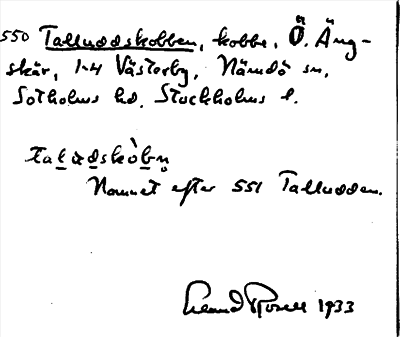 550 Talluddskobben, kobbe, Ö. Äng-
skär, 1-4 Västerby, Nämdö sn,
Sotholms hd. Stockholms l.
taludskòbn̥
Namnet efter 551 Talludden.
1933